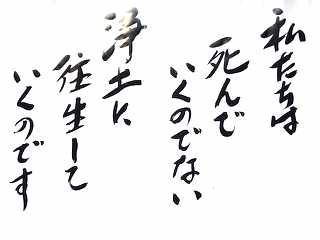 私たちは
死んで
いくのでない
浄土に
往生して
いくのです